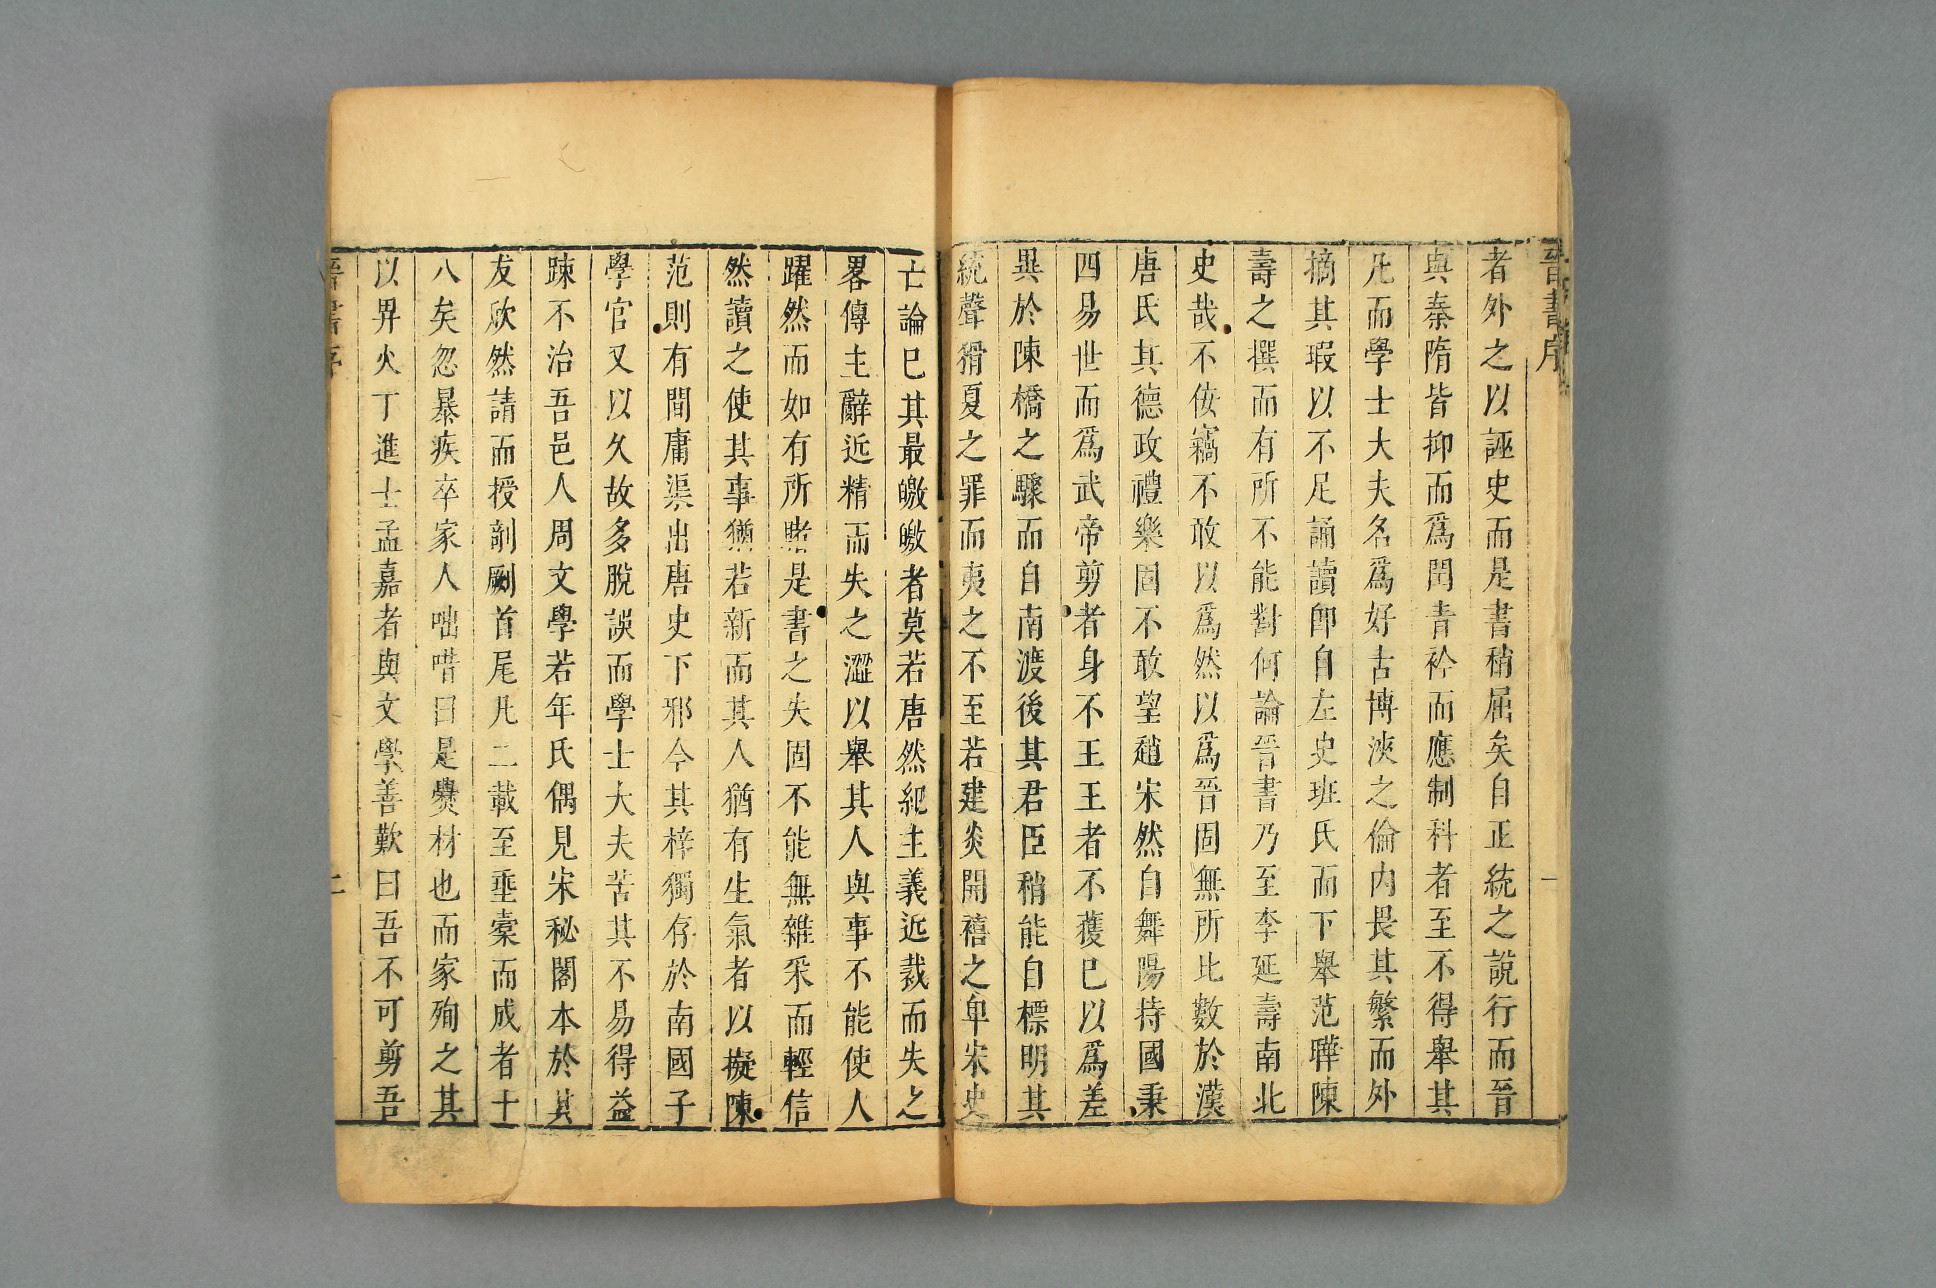 晉書序
一
者外之以誣史而是書稍屈矣自正統之說行而晉
與秦隋皆抑而爲閏青衿而應制科者至不得舉其
凡而學士大夫名爲好古博浹之倫內畏其繁而外
摘其瑕以不足誦讀卽自左史班氏而下舉范曄陳
壽之撰而有所不能對何論晉書乃至李延壽南北
史哉不佞竊不敢以爲然以爲晉固無所比數於漢
唐氏其德政禮樂固不敢望趙宋然自舞陽持國秉
四易世而爲武帝剪者身不王王者不獲已以爲差
異於陳橋之驟而自南渡後其君臣稍能自標明其
統聲猾夏之罪而夷之不至若建炎開禧之卑宋史
亡論已其最皦皦者莫若唐然紀主義近裁而失之
畧傳主辭近精而失之澀以舉其人與事不能使人
躍然而如有所覩是書之失固不能無雜釆而輕信
然讀之使其事猶若新而其人猶有生氣者以擬陳
范則有間庸渠出唐史下邪今其梓獨存於南國子
學官又以久故多脫誤而學士大夫苦其不易得益
踈不治吾邑人周文學若年氏偶見宋秘閣本於其
友欣然請而授剞劂首尾凡二載至垂槖而成者十
八矣忽暴疾卒家人咄唶曰是㸑材也而家殉之其
以畀火丁進士孟嘉者與文學善歎曰吾不可剪吾
晉書序
二